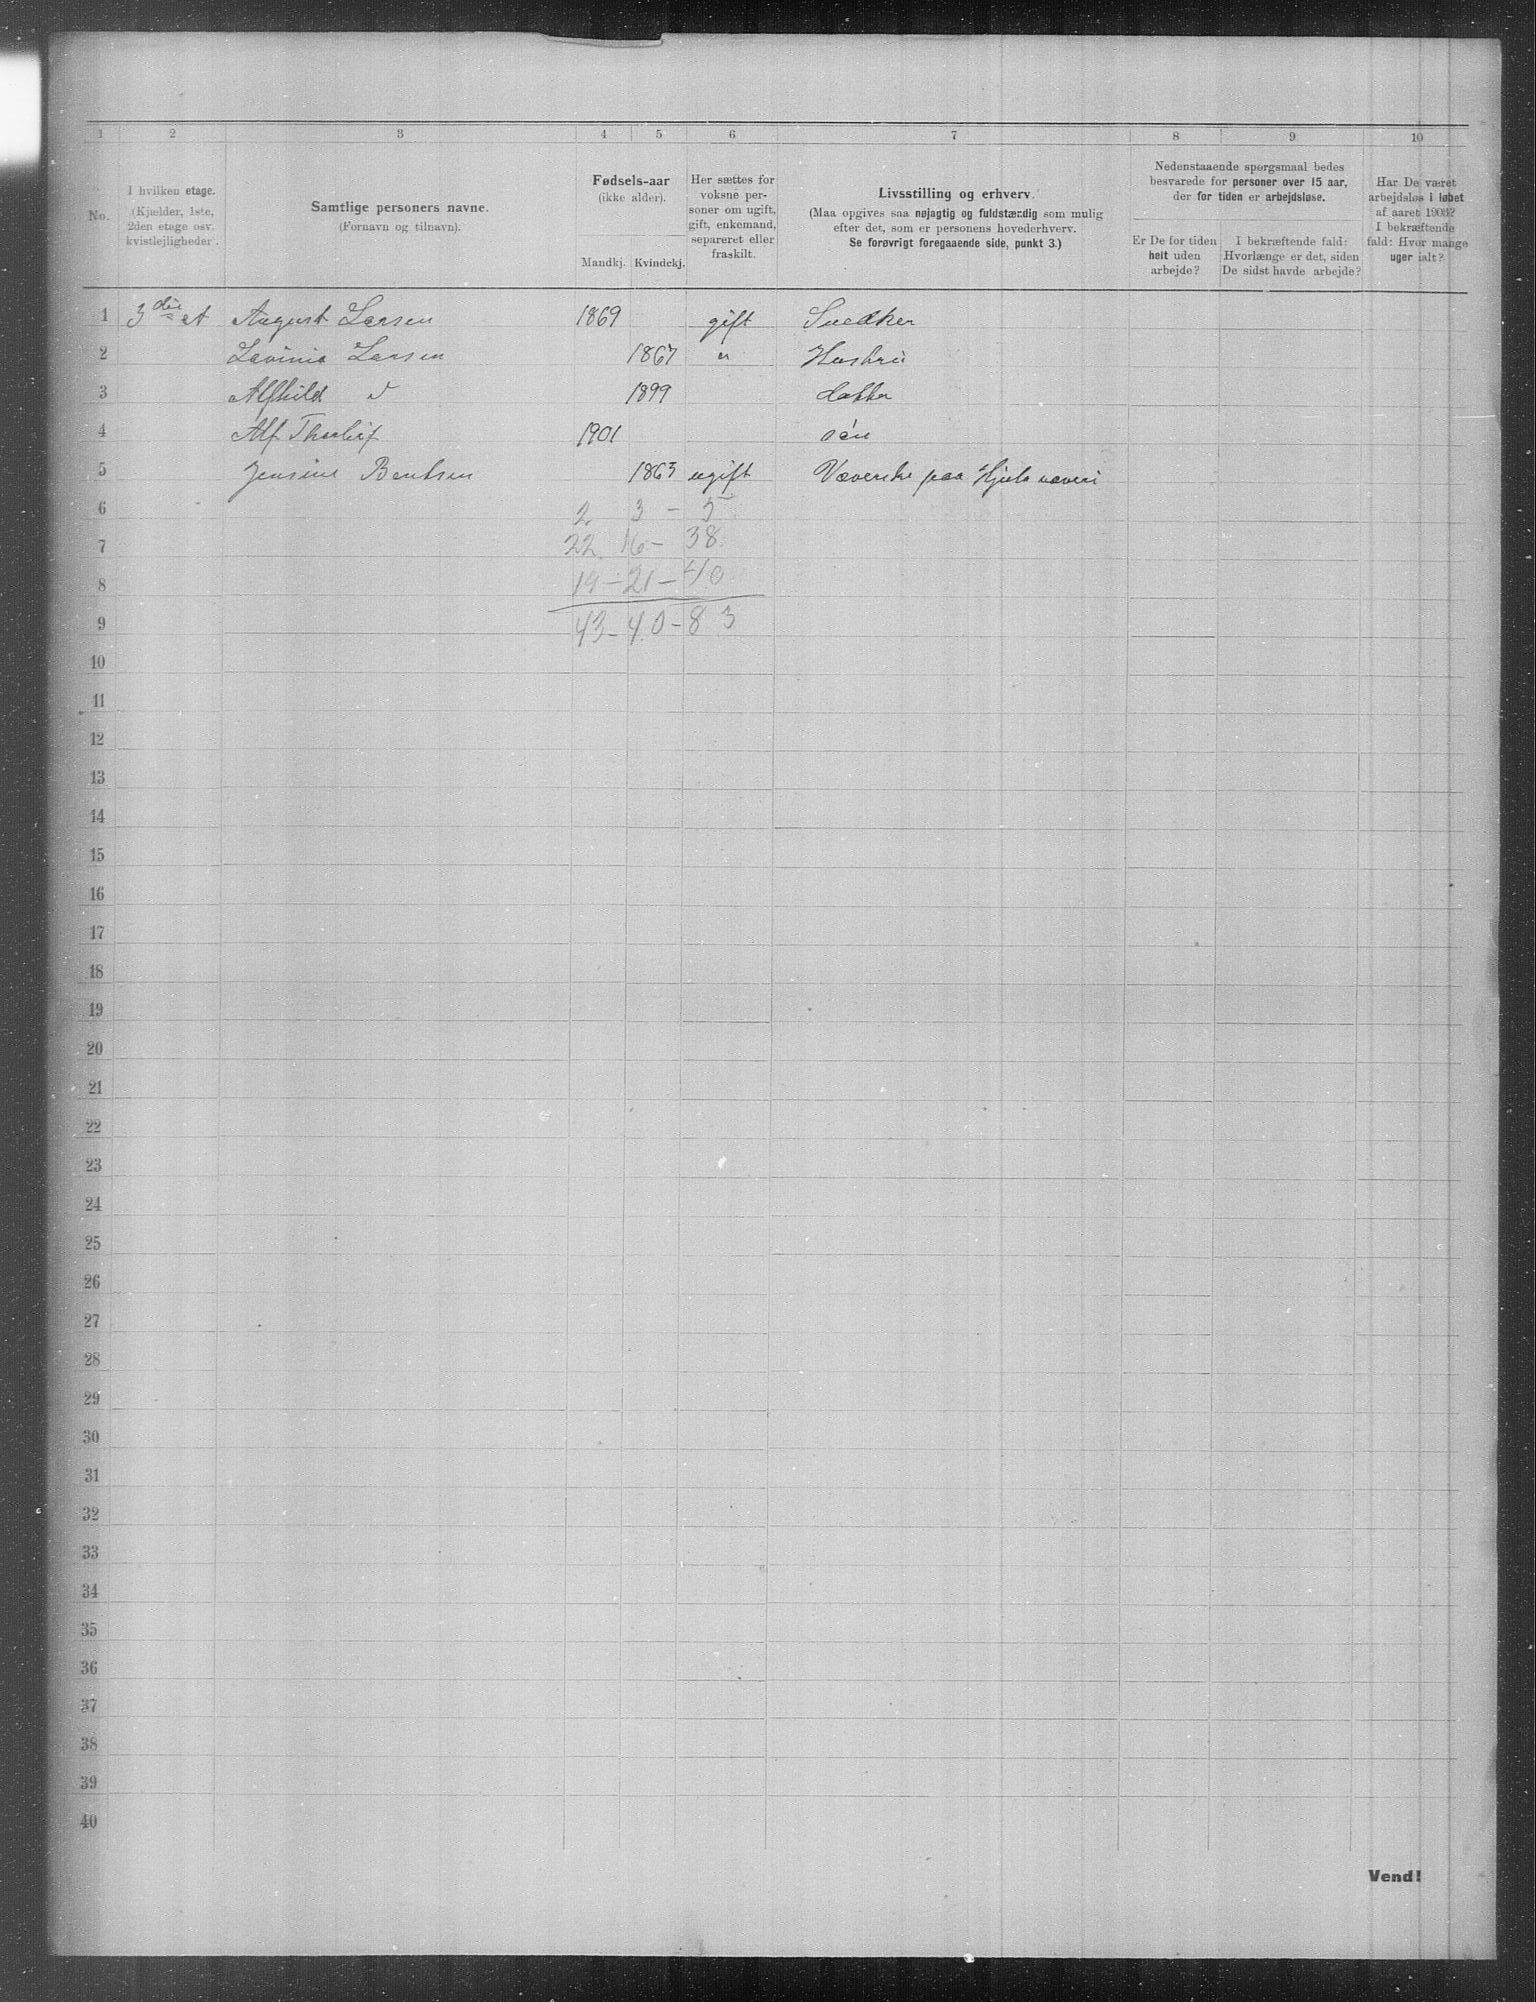 1 2 3 4 5 6 7 8 9 10
No.
I hvilken etage.
(Kjælder, 1ste,
2den etage osv.
kvistlejligheder.
Samtlige personers navne.
(Fornavn og tilnavn).
Fødsels-aar
(ikke alder).
Mandkj. Kvindekj.
Her sættes for
voksne per-
soner om ugift,
gift, enkemand,
separeret eller
fraskilt.
Livsstilling og erhverv.
(Maa opgives saa nøjagtig og fuldstændig som mulig
efter det, som er personens hovederhverv.
Se forøvrigt foregaaende side, punkt 3.)
Nedenstaaende spørgsmaal bedes
besvarede for personer over 15 aar,
der for tiden er arbejdsløse.
Er De for tiden
helt uden
arbejde?
I bekræftende fald:
Hvorlænge er det, siden
De sidst havde arbejde?
Har De været
arbejdsløs i løbet
af aaret 190?
I bekræftende
fald: Hvor mange
uger ialt?
1 3die et August Larsen 1869 gift Snedker
2 Lavinia Larsen 1867 " Hustru
3 Alfhild 1899 datter
4 Alf Thorleif 1901 søn
5 Jensine Bentsen 1863 ugift Væverske paa Hjula væveri
6 2 3 - 5
7 22 16 - 38
8 19 - 21 - 40
9 43 - 40 - 83
10
11
12
13
14
15
16
17
18
19
20
21
22
23
24
25
26
27
28
29
30
31
32
33
34
35
36
37
38
39
40
Vend!